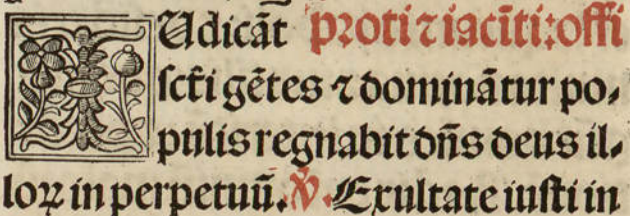 IUdicãt proti ⁊ iacīti: offi
scti gẽtes ⁊ dominãtur po⸗
pulis regnabit dñs deus il⸗
loꝝ in perpetuũ. ℣. Exultate iusti in